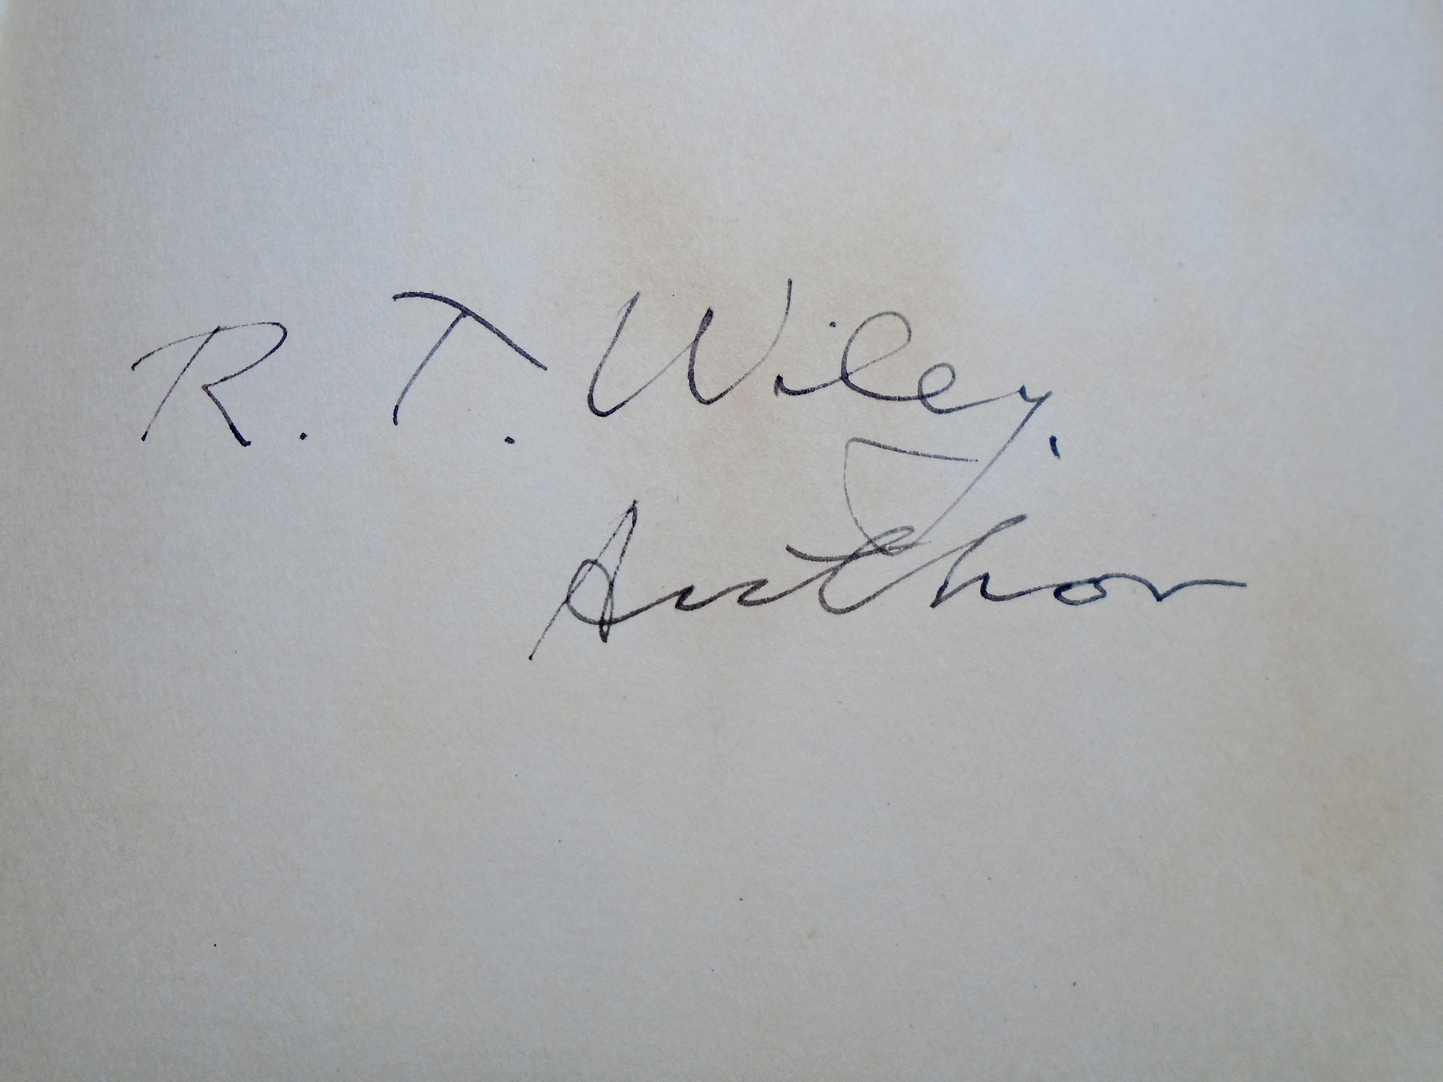 R. T. Wiley,
Author